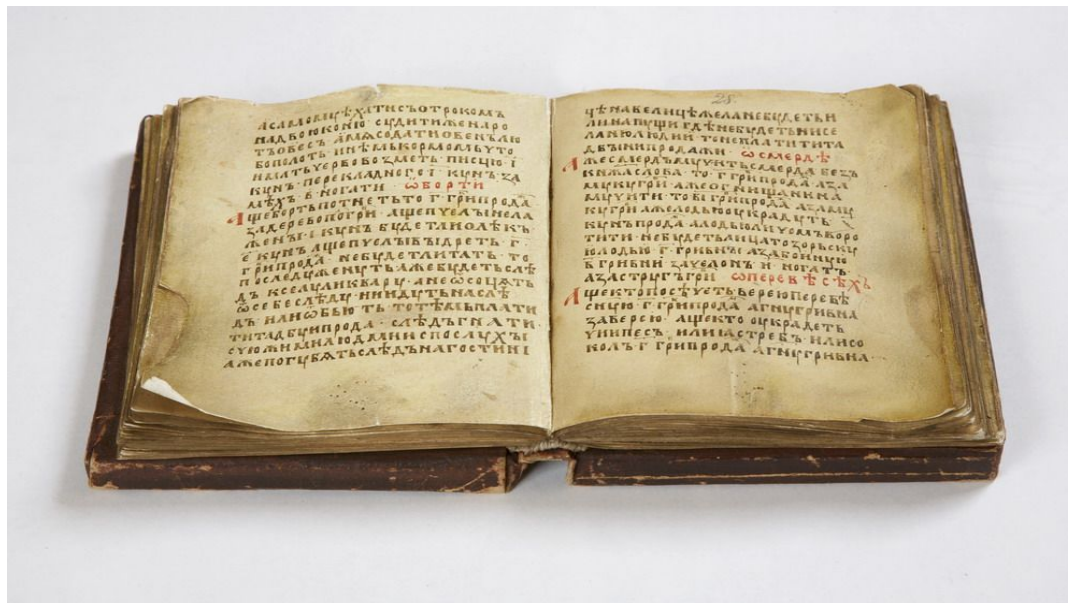 а самомꙋ ѣхати съ отрокомъ
на двою коню · сꙋдити же на ро
тъ овесъ а мѧсо дати овенъ лю
бо полоть инѣмь кормомь ꙋто
има ть черево возметь · писцю · і ·
кꙋнъ · перекладного · г · кꙋнъ · за
мѣхъ · в · ногати · ѡ борти
Аще борть потнеть то · г · грн прода
за дерево погри · аще пчелы
женꙑ · і · кꙋнъ бꙋдет ли олѣкъ
є кꙋнъ аще пчелы выдреть · г ·
грн прода · не бꙋдет ли тать · то
по слѣдꙋ женꙋть аже бꙋдеть слѣ
дъ к селꙋ или к вару · а не ѡсоцѧть
ѡ себе слѣдꙋ ни идꙋть на слѣ
дъ или ѡбью ть то тѣмь плати
ти татбꙋ и прода · слѣдъ гнати ·
с чюжими людми и с послꙋхꙑ
аже погꙋбѧть слѣдъ на гостинї
28.
цѣ на велицѣ а села не бꙋдеть и
ли на пꙋщи гдѣ не бꙋдеть ни се
ла ни людии то не платити та
дбꙑ ни продажи · ѡ смердѣ
Аже смердъ мꙋчить смерда безъ
кнѧжа слова · то · г · грн прода · а за
мꙋкꙋ грн · аже огнищанина
мꙋчити · то · ві · грн прода · а за мꙋ
кꙋ грн аже лодью ꙋкрадꙋть
кꙋнъ прода · а лодью лицомъ воро
тити · не бꙋдеть лица то за морьскꙋ
ю лодью · г · гривнꙑ · а за бонную
в гривни за челонъ и · ногатъ ·
а за стрꙋгъ грн · ѡ перевѣсѣхъ
Аще кто посѣчеть верею перевѣ
снꙋю · г · грн прода · а гнꙋ гривна
за верею · аще кто ꙋкрадеть
чии песъ · или ꙗстребъ · или со
колъ · г · грн прода · а гнꙋ гривна ·